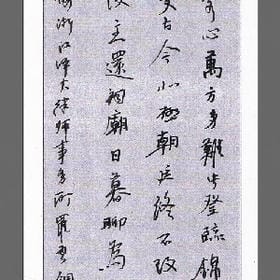 客心萬方多難此登臨錦
變古今北極朝廷終不改
後主還祠廟日暮聊為
浙江澤大律師事務所羅